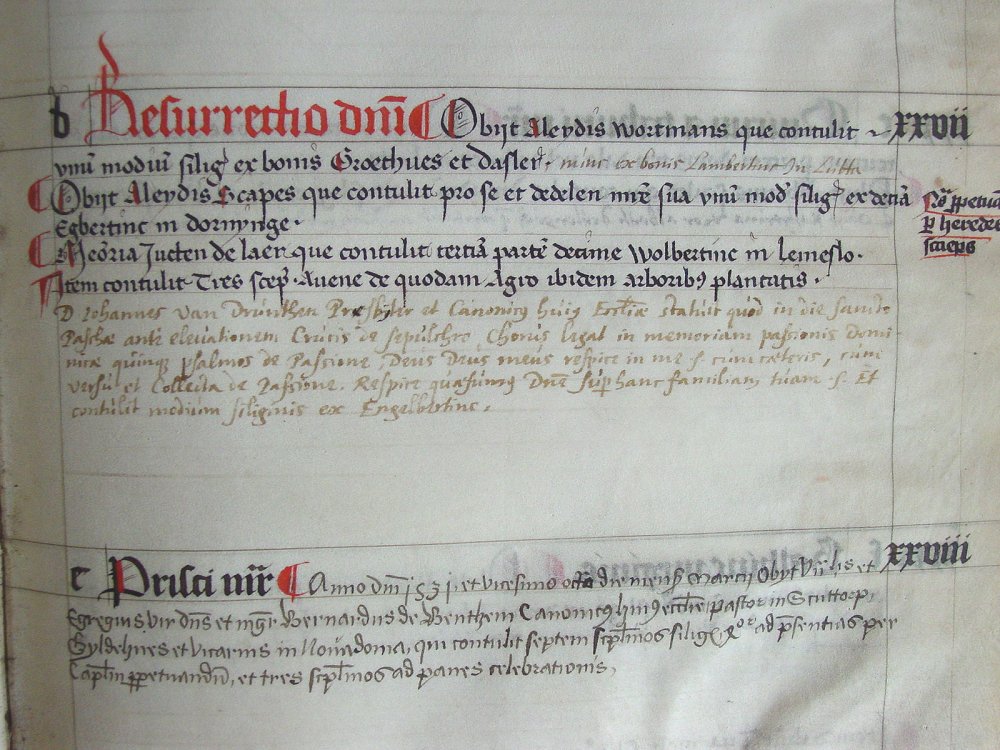 b Resurrectio dnī Obijt Aleydis Wortmans que contulit xxvii
vnū modiū silig ex bonis Groethues et dasler. ex bonis Lambertinc in Lutta
Obijt Aleydis Scapes que contulit pro se et dedelen mr̄e sua vnū mod silig ex deciā
Egbertinc in dornynge.
Nō ppetuā
p herede
sceps
Meōria Jutten de laer que contulit terciā partē decime Wolbertinc in lemeslo.
Item contulit Tres scep. Avene de quodam Agro ibidem arboribꝫ plantatis.
D Iohannes van Drunthen Presbyter et Canonicꝰ huiꝰ Eccliæ statuit quod in die sancto
Paschæ ante elevationem Crucis de sepulchro, Chorus legat in memoriam passionis Domi-
nicæ quinque psalmos de Passione, Deus Deus meus respice in me s. cum cæteris, cum
versu et Collecta de Passione. Respice quæsumꝰ Dn̄e sup hanc familiam tuam s. Et
contulit modium siliginis ex Engelbertinc.
c Prisci mr̄ Anno dnī 1531 et vicesimo octa die mensꝭ Marcij Obyt et xxviii
Egregius vir dn̄s et mgr Bernardus de Benthem Canonicꝰ huiꝰ eccl̄ie pastor in
Gyldehues et vicarius in Novadomo, qui contulit septem ad pn̄sentias per
ppetuandū, et tres ad panes celebrationis,